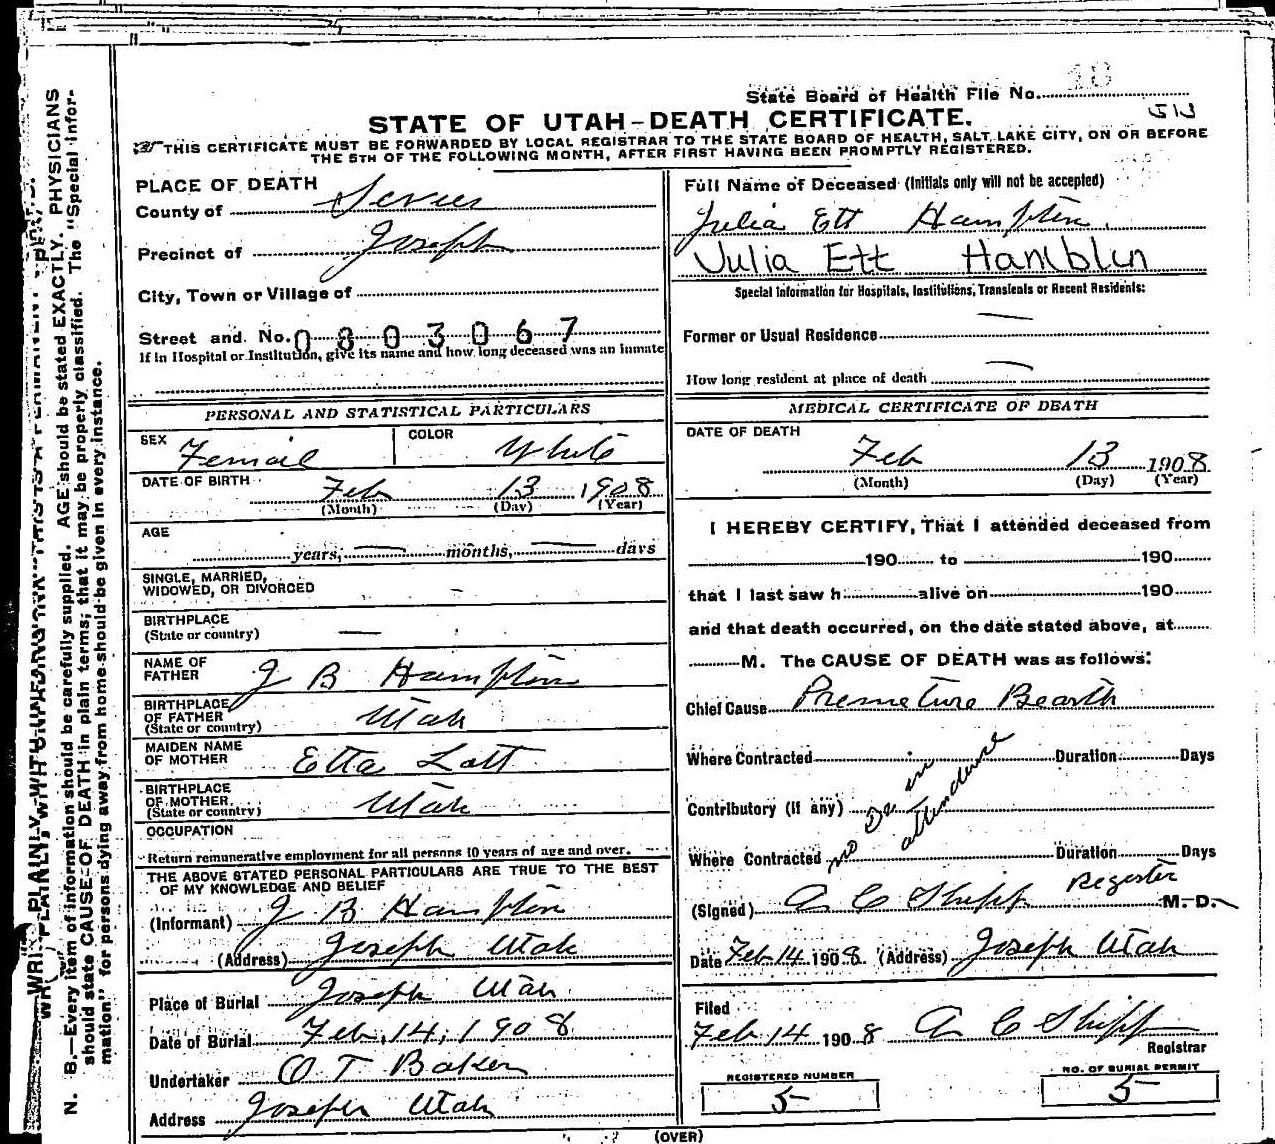 State Board of Health File No. 18
STATE OF UTAH–DEATH CERTIFICATE.
THIS CERTIFICATE MUST BE FORWARDED BY LOCAL REGISTRAR TO THE STATE BOARD OF HEALTH, SALT LAKE CITY, ON OR BEFORE
THE 5TH OF THE FOLLOWING MONTH, AFTER FIRST HAVING BEEN PROMPTLY REGISTERED.
PLACE OF DEATH
County of Sevier
Precinct of Joseph
City, Town or Village of
Street and No. 0803067
If in Hospital or Institution, give its name and how long deceased was an inmate
Full Name of Deceased (Initials only will not be accepted)
Julia Ett Hampton.
Julia Ett Hamblin
Special Information for Hospitals, Institutions, Transients or Recent Residents:
Former or Usual Residence —
How long resident at place of death —
PERSONAL AND STATISTICAL PARTICULARS
SEX Femail COLOR White
DATE OF BIRTH Feb 13 1908
(Month) (Day) (Year)
AGE
years, — months, — days
SINGLE, MARRIED,
WIDOWED, OR DIVORCED -
BIRTHPLACE
(State or country) —
NAME OF
FATHER J B Hampton
BIRTHPLACE
OF FATHER
(State or country) Utah
MAIDEN NAME
OF MOTHER Etta Lott
BIRTHPLACE
OF MOTHER,
(State or country) Utah
OCCUPATION
Return remunerative employment for all persons 10 years of age and over.
THE ABOVE STATED PERSONAL PARTICULARS ARE TRUE TO THE BEST
OF MY KNOWLEDGE AND BELIEF
(Informant) J B Hampton
(Address) Joseph Utah
Place of Burial Joseph Utah
Date of Burial Feb, 14, 1908
Undertaker O T Baker
Address Joseph Utah
MEDICAL CERTIFICATE OF DEATH
DATE OF DEATH
Feb 13 1908
(Month) (Day) (Year)
I HEREBY CERTIFY, That I attended deceased from
190 to 190
that I last saw h alive on 190
and that death occurred, on the date stated above, at
M. The CAUSE OF DEATH was as follows:
Chief Cause Premeture Bearth
Where Contracted Duration Days
Contributory (if any)
no Dr in
attendance
Where Contracted Duration Days
(Signed) A C Shipp Register M. D.
Date Feb 14 1908 (Address) Joseph Utah
Filed
Feb 14 1908 A C Shipp
Registrar
REGISTERED NUMBER
5
NO. OF BURIAL PERMIT
5
(OVER)
N. B.—Every item of information should be carefully supplied. AGE should be stated EXACTLY. PHYSICIANS
should state CAUSE OF DEATH in plain terms, that it may be properly classified. The "Special Infor-
mation" for persons dying away from home should be given in every instance.